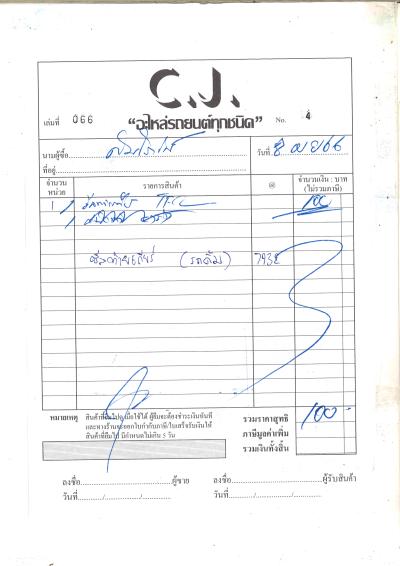 C.J.
เล่มที่ 066 "อะไหล่รถยนต์ทุกชนิด" No. 4
นามผู้ซื้อ วันที่ 8 เมย 66
ที่อยู่
จำนวน หน่วย รายการสินค้า @ จำนวนเงิน : บาท (ไม่รวมภาษี)
1 100
ซีลท้ายเกียร์ (รถดั๊ม) 7932
หมายเหตุ สินค้าที่ยืมไป เมื่อใช้ได้ ผู้ยืมจะต้องชำระเงินทันที รวมราคาสุทธิ 100-
และทางร้านจะออกใบกำกับภาษีใบเสร็จรับเงินให้ ภาษีมูลค่าเพิ่ม
สินค้าที่ยืมไป มีกำหนดไม่เกิน 5 วัน รวมเงินทั้งสิ้น
ลงชื่อ ผู้ขาย ลงชื่อ ผู้รับสินค้า
วันที่ / / วันที่ / /